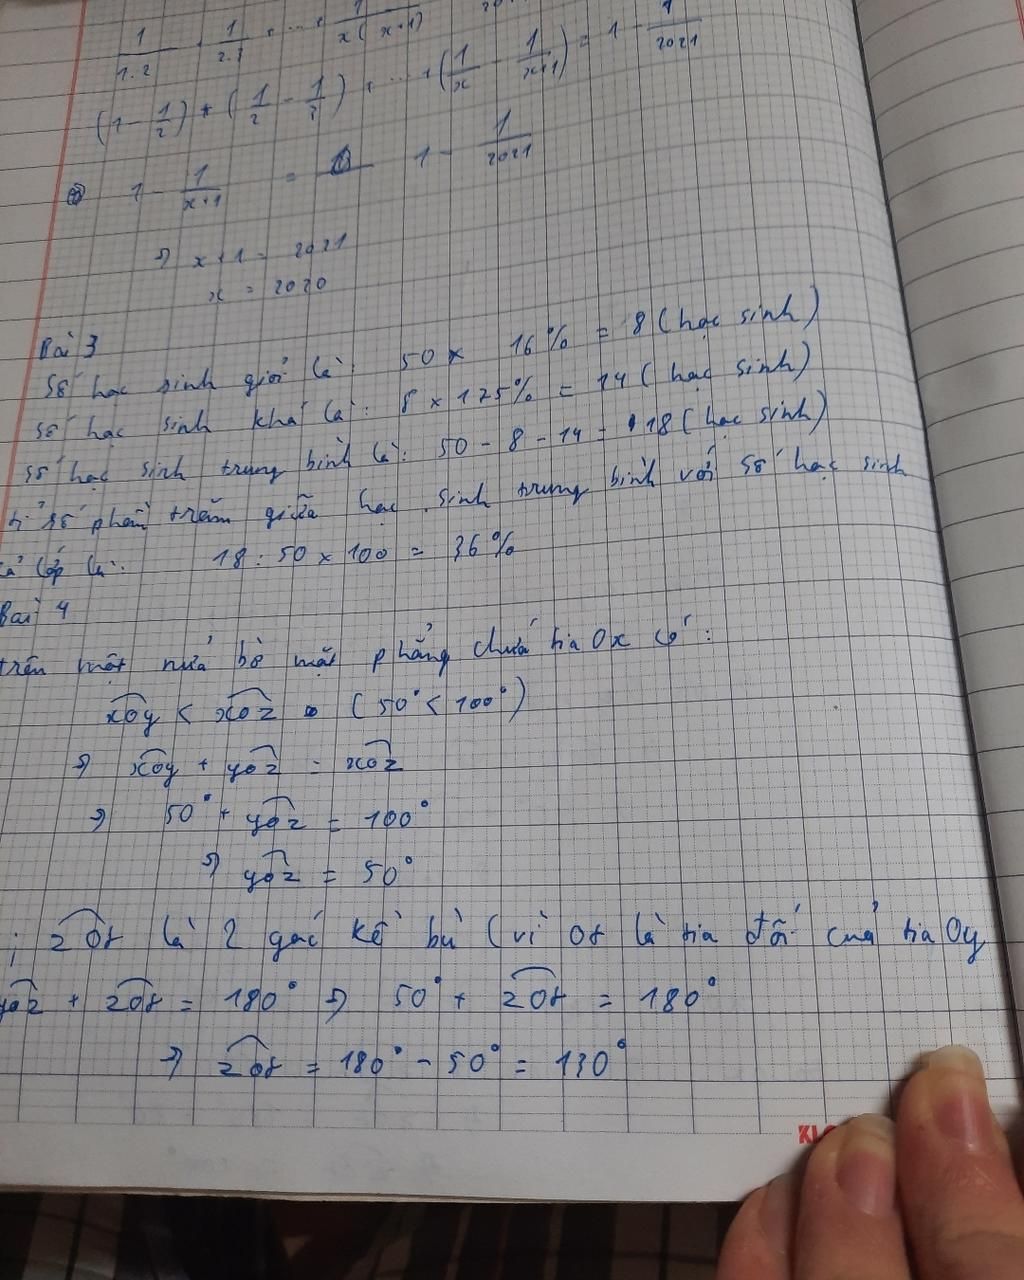 1/1.2 + 1/2.3 + ... + 1/x(x+1)
(1 - 1/2) + (1/2 - 1/3) + ... + (1/x - 1/x+1) = 1 - 1/2021
1 - 1/x+1 = 1 - 1/2021
⇒ x + 1 = 2021
x = 2020
Bài 3
Số học sinh giỏi là: 50 x 16% = 8 (học sinh)
số học sinh khá là: 8 x 175% = 14 (học sinh)
số học sinh trung bình là: 50 - 8 - 14 = 18 (học sinh)
tỉ số phần trăm giữa học sinh trung bình với số học sinh
cả lớp là: 18 : 50 x 100 = 36%
Bài 4
trên một nửa bờ mặt phẳng chứa tia Ox có:
xOy < xOz (50° < 100°)
⇒ xOy + yOz = xOz
⇒ 50° + yOz = 100°
⇒ yOz = 50°
; zOt là 2 góc kề bù (vì Ot là tia đối của tia Oy
yOz + zOt = 180° ⇒ 50° + zOt = 180°
⇒ zOt = 180° - 50° = 130°